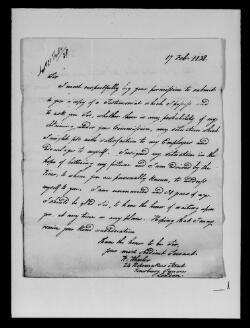 17 Feb. 1838.
Sir
I most respectfully beg your permission to submit
to you a copy of a Testimonial which I possess and
to ask you Sir, whether there is any probability of my
obtaining, under your Commission, any situation which
I might fill with satisfaction to my Employers and
advantage to myself. I resigned my situation in the
hope of bettering my fortune and I am advised by the
to whom you are personally known, to address
myself to you. I am unmarried and 31 years of age.
I should be glad Sir, to have the honor of waiting upon
you at any time or any place. Hoping that I may
receive your kind consideration
I have the honor to be Sir,
your most obedient Servant.
24 Ropemakers Street
Finsbury Square
London